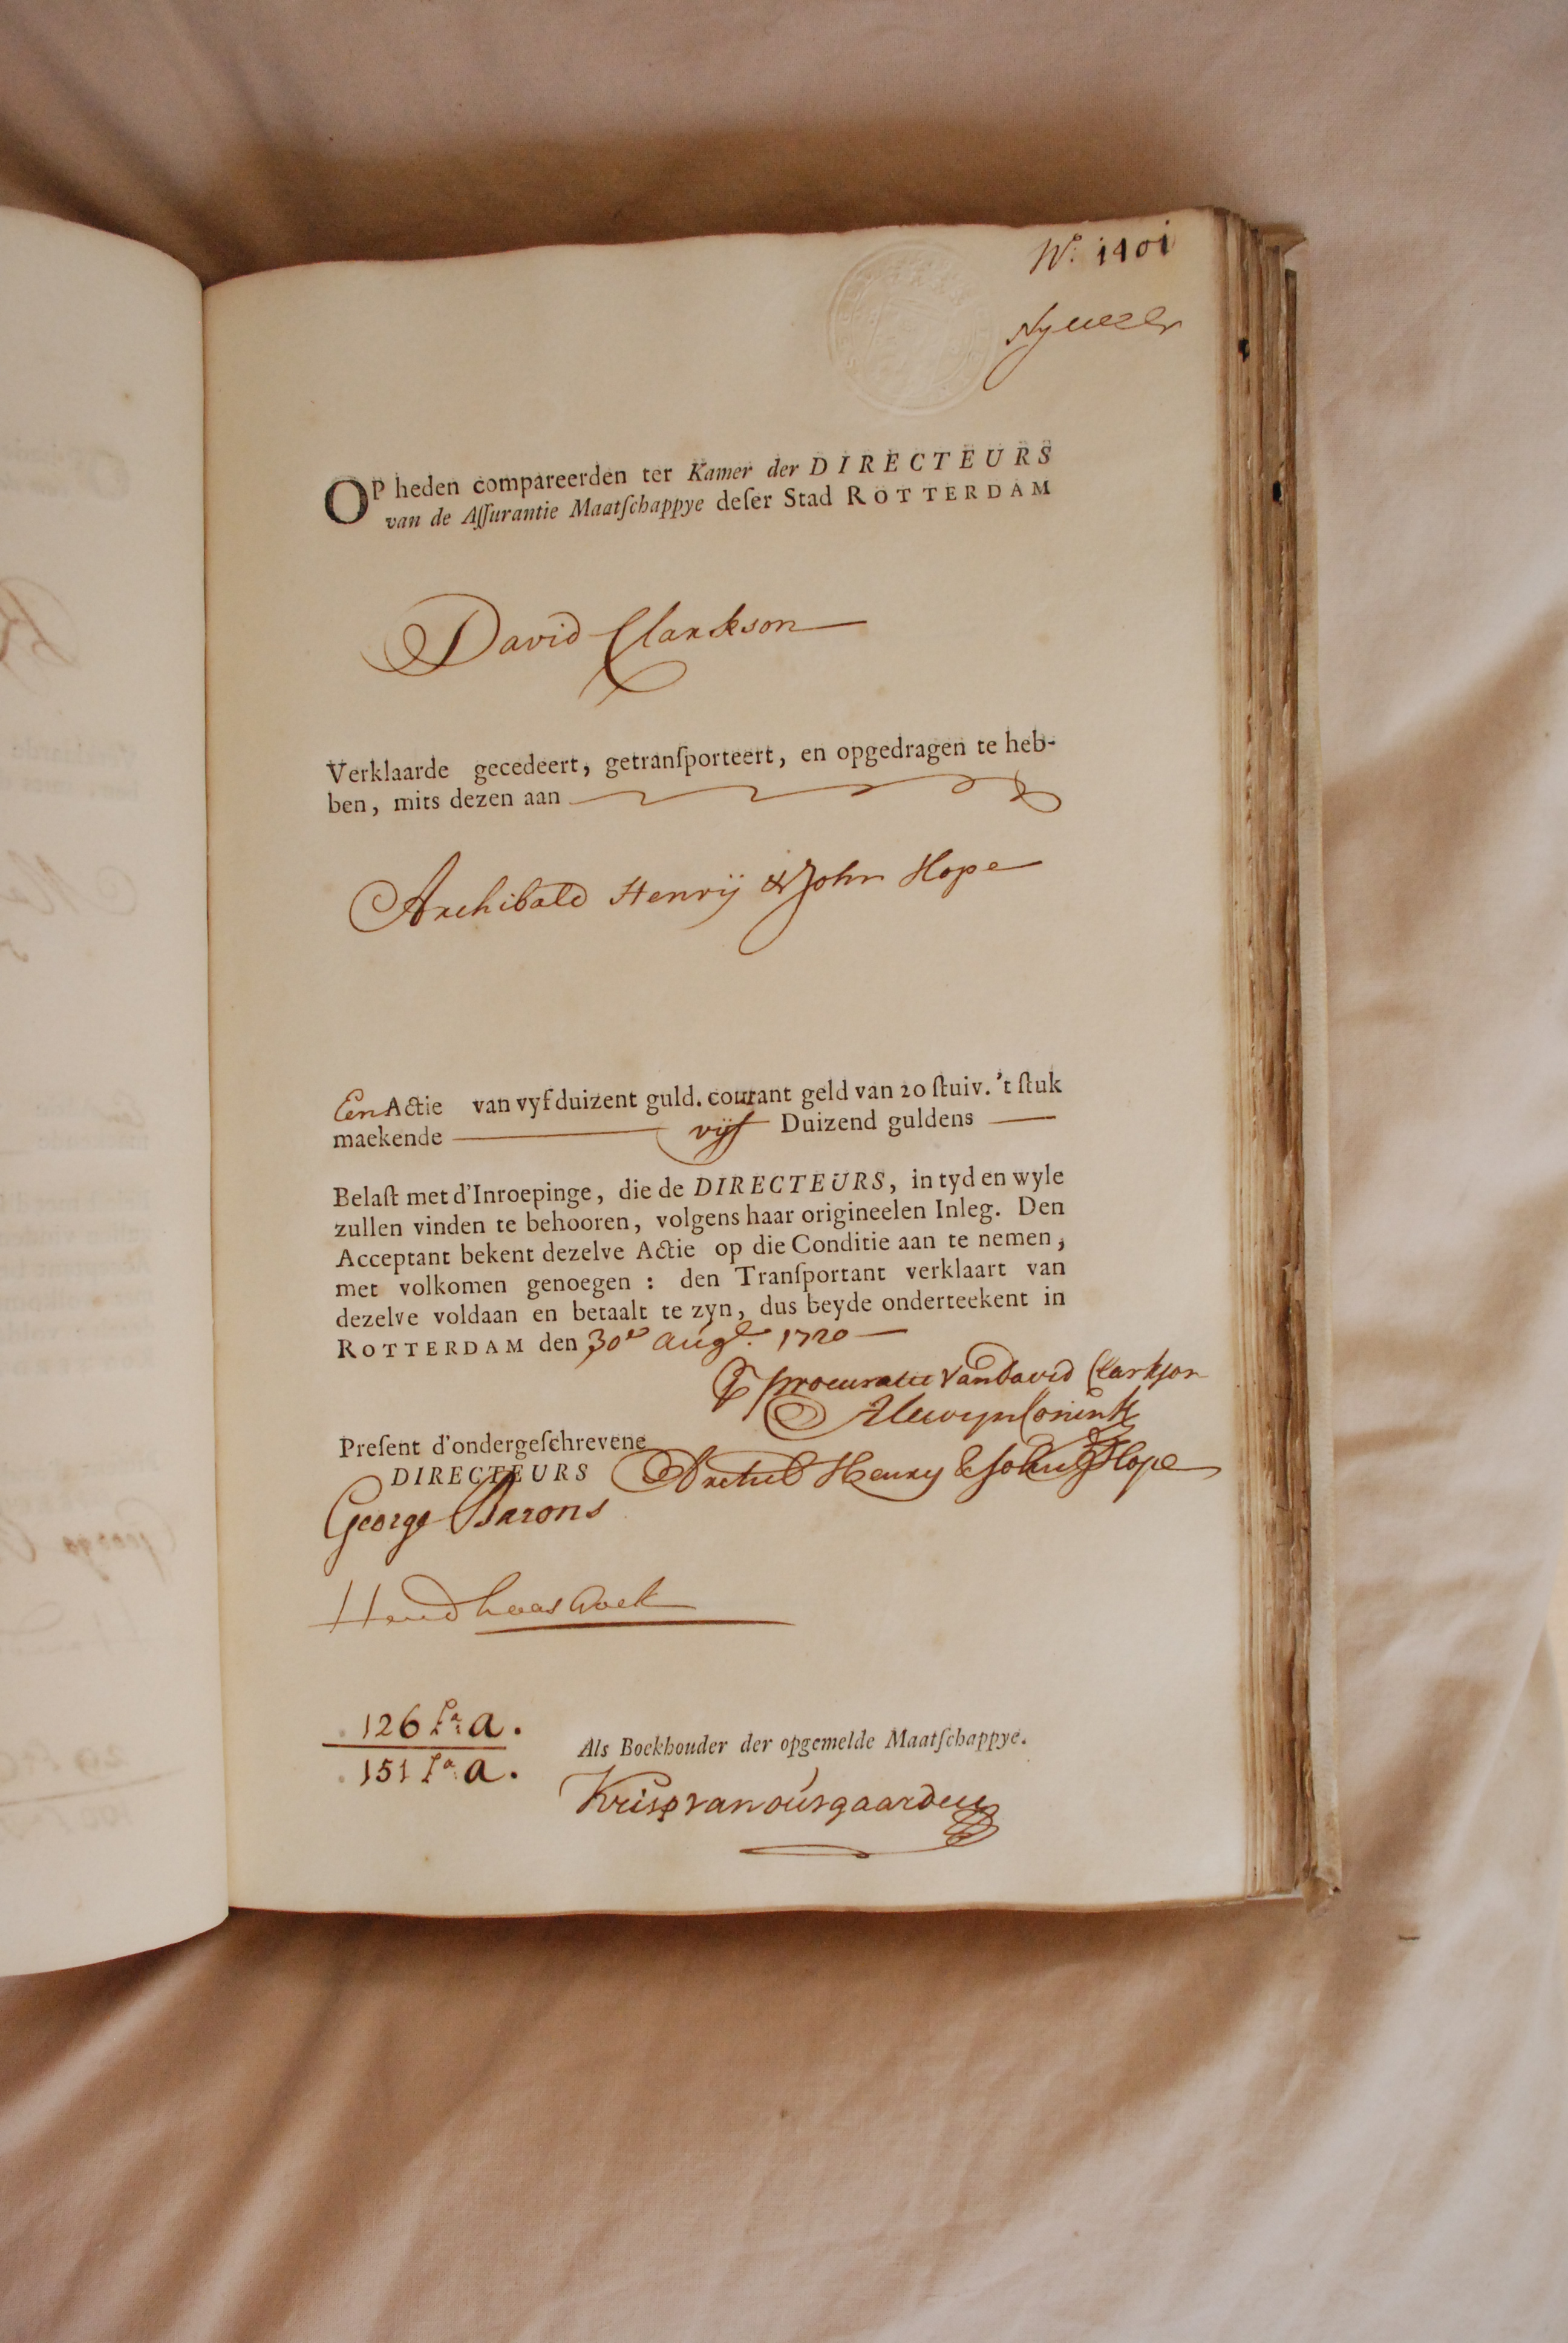 No. 1401
OP heden compareerden ter Kamer der DIRECTEURS
van de Aſſurantie Maatſchappye deſer Stad ROTTERDAM
David Clarkson
Verklaarde gecedeert, getranſporteert, en opgedragen te heb-
ben, mits dezen aan
Archibald Henrij & John Hope
Een Actie van vyf duizent guld. courant geld van 20 ſtuiv. 't ſtuk
maekende vijf Duizend guldens
Belaſt met d'Inroepinge, die de DIRECTEURS, in tyd en wyle
zullen vinden te behooren, volgens haar origineelen Inleg. Den
Acceptant bekent dezelve Actie op die Conditie aan te nemen,
met volkomen genoegen : den Tranſportant verklaart van
dezelve voldaan en betaalt te zyn, dus beyde onderteekent in
ROTTERDAM den 30e augt. 1720
procuratie van David Clarkson
Alewyn Conink
Preſent d'ondergeſchrevene
DIRECTEURS
Archd Henry & John Hope
George Barons
126 a.
151 a.
Als Boekhouder der opgemelde Maatſchappye.